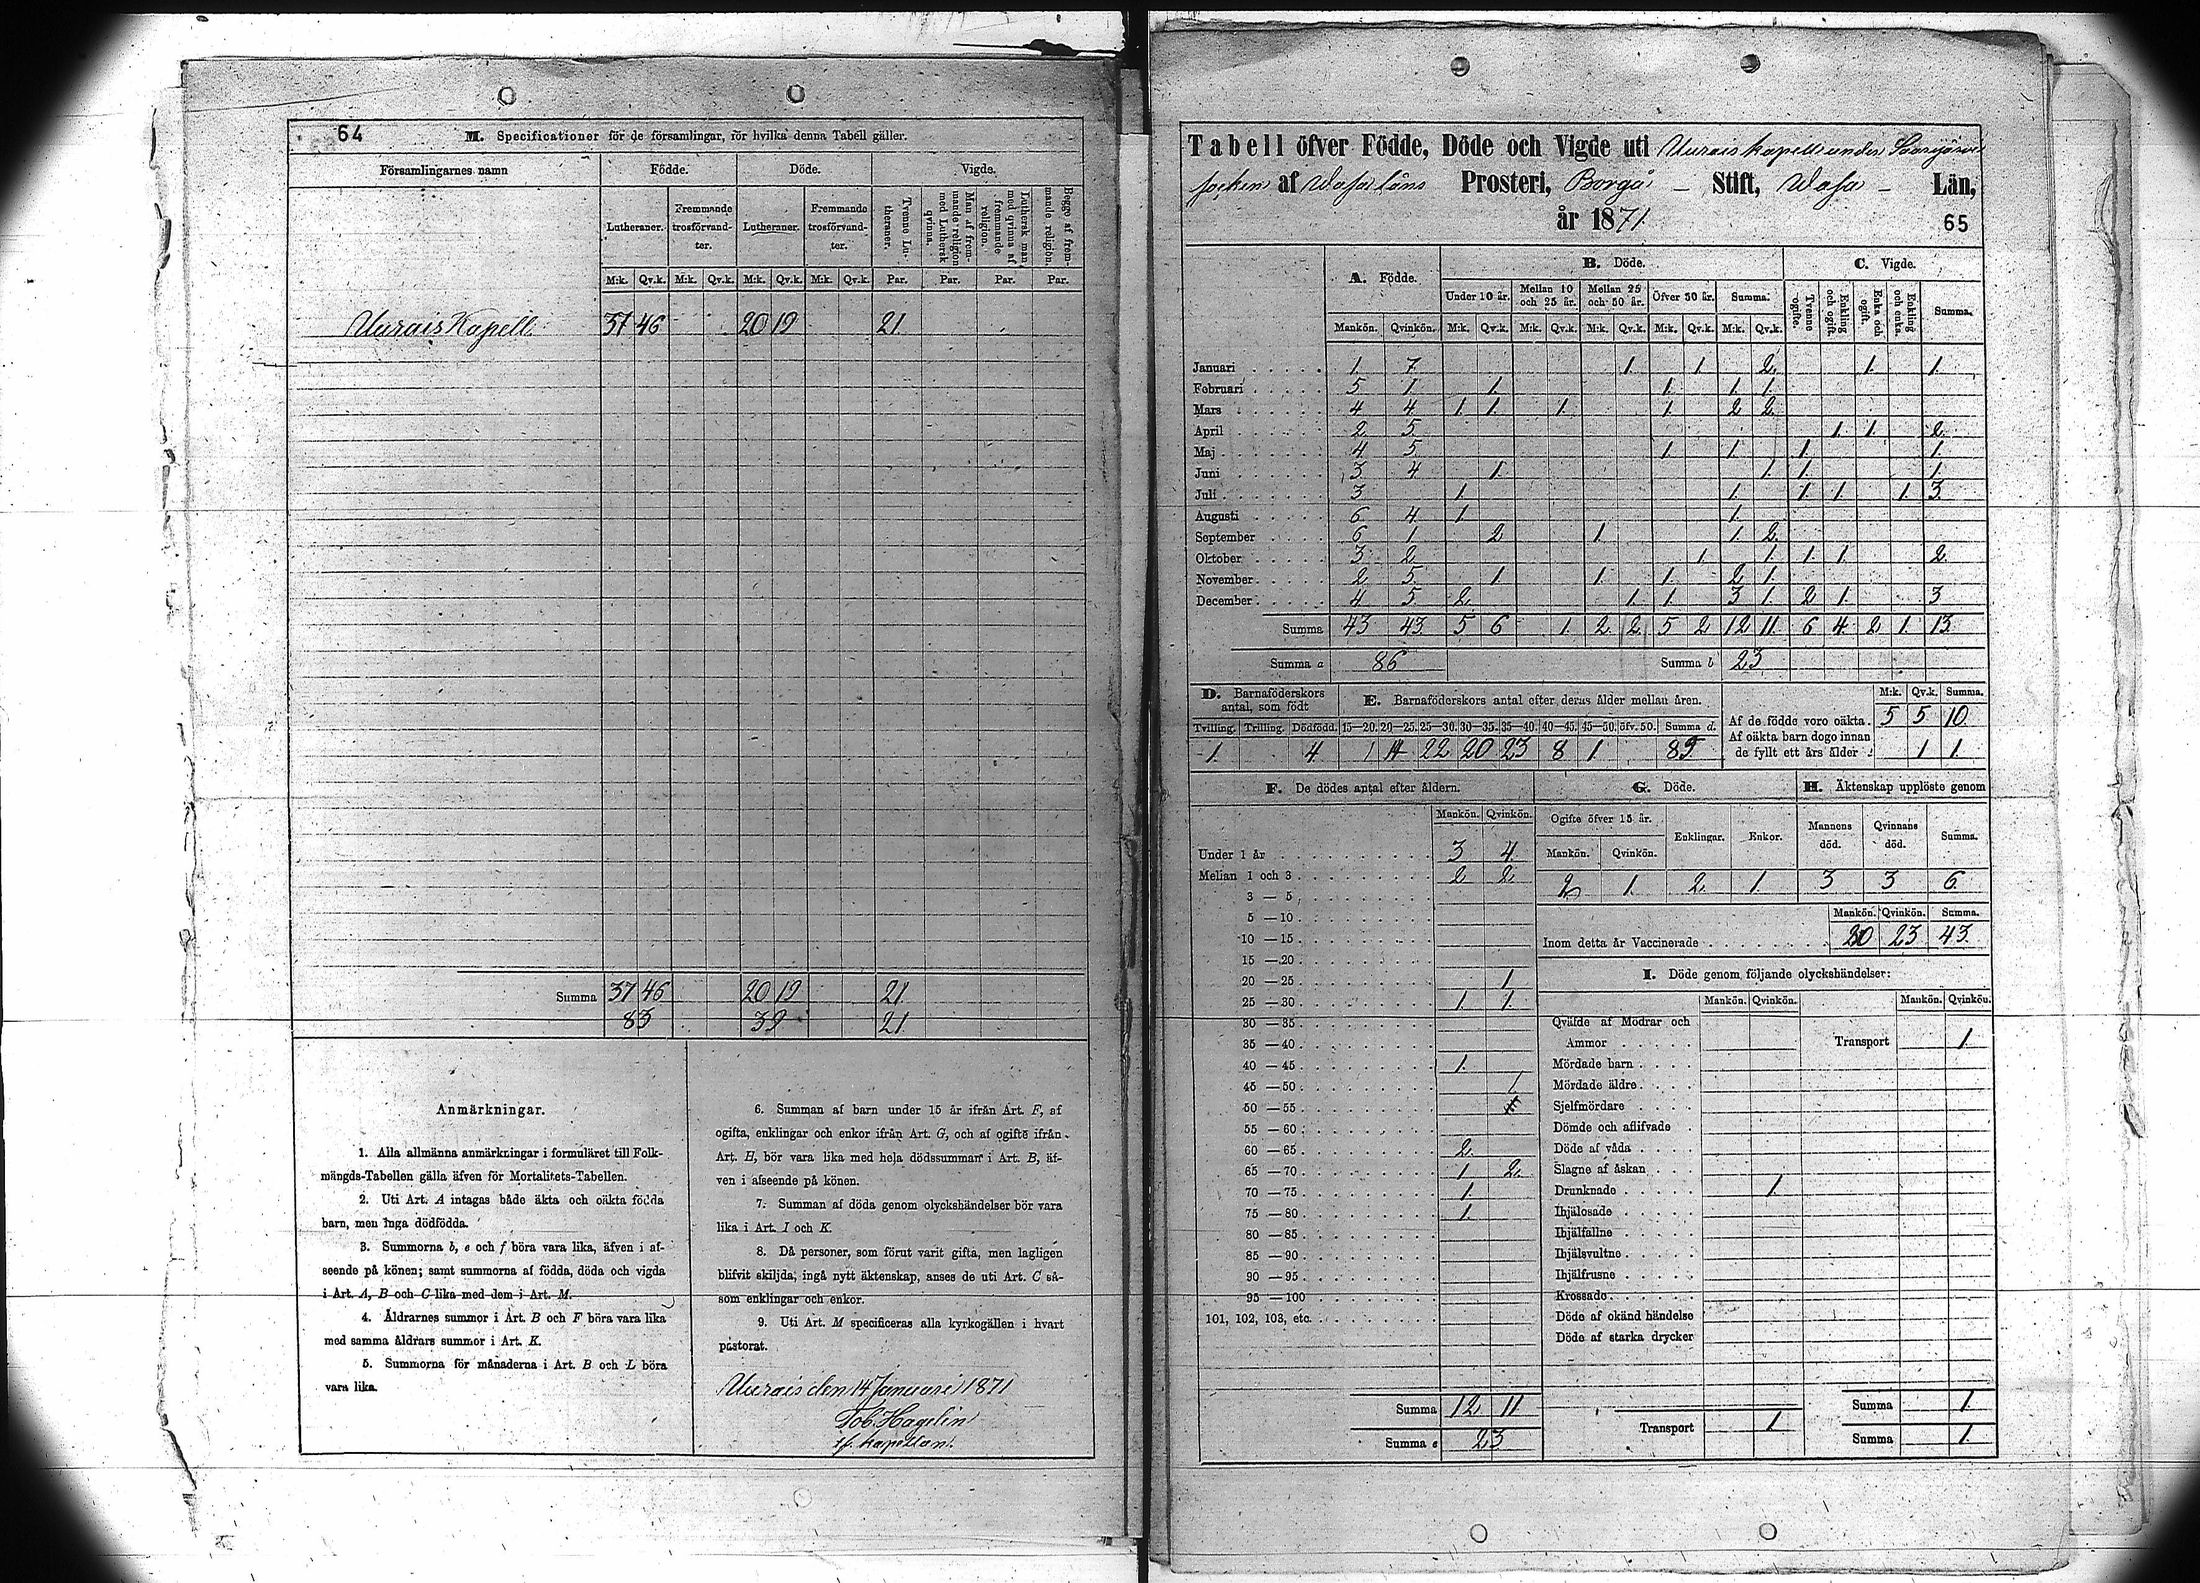 64
M. Specificationer för de församlingar, för hvilka denna Tabell gäller.
Församlingarnes namn Födde. Döde. Vigde.
Lutheraner. Fremmande trosförvand-ter. Lutheraner. Fremmande trosförvand-ter. Tvenne Lu-theraner. Man af frem-mande religion med Luthersk qvinna. Luthersk man med qvinna af fremmande religion. Begge af frem-mande religion.
M:k. Qv.k. M:k. Qv.k. M:k. Qv.k. M:k. Qv.k. Par. Par. Par. Par.
Uurais Kapell 37 46 20 19 21
Summa 37 46 20 19 21
83 39 21
Anmärkningar.
1. Alla allmänna anmärkningar i formuläret till Folk-
mängds-Tabellen gälla äfven för Mortalitets-Tabellen.
2. Uti Art. A intagas både äkta och oäkta födda
barn, men inga dödfödda.
3. Summorna b, e och f böra vara lika, äfven i af-
seende på könen; samt summorna af födda, döda och vigda
i Art. A, B och C lika med dem i Art. M.
4. Åldrarnes summor i Art. B och F böra vara lika
med samma åldrars summor i Art. K.
5. Summorna för månaderna i Art. B och L böra
vara lika.
6. Summan af barn under 15 år ifrån Art. F, af
ogifta, enklingar och enkor ifrån Art. G, och af ogifte ifrån
Art. H, bör vara lika med hela dödssumman i Art. B, äf-
ven i afseende på könen.
7. Summan af döda genom olyckshändelser bör vara
lika i Art. I och K.
8. Då personer, som förut varit gifta, men lagligen
blifvit skiljda, ingå nytt äktenskap, anses de uti Art. C så-
som enklingar och enkor.
9. Uti Art. M specificeras alla kyrkogällen i hvart
pastorat.
Uurais den 14 Januari 1871
Tob. Hagelin
kapellan.
Tabell öfver Födde, Döde och Vigde uti Uurais kapell under Saarijärvi
socken af Wasa läns Prosteri, Borgå Stift, Wasa Län,
år 1871.
65
A. Födde. B. Döde. C. Vigde.
Under 10 år. Mellan 10 och 25 år. Mellan 25 och 50 år. Öfver 50 år. Summa. Tvenne ogifte. Enkling och ogift. Enka och ogift. Enkling och enka. Summa.
Mankön. Qvinkön. M:k. Qv.k. M:k. Qv.k. M:k. Qv.k. M:k. Qv.k. M:k. Qv.k.
Januari 1. 7. 1. 1. 2. 1. 1.
Februari 5 1. 1. 1. 1. 1.
Mars 4 4 1. 1. 1. 1. 2 2
April 2 5 1. 1. 2.
Maj 4 5 1. 1. 1. 1.
Juni 3 4 1. 1. 1. 1.
Juli 3 1. 1. 1. 1. 1. 3
Augusti 6 4 1. 1.
September 6 1 2 1. 1. 2
Oktober 3 2 1. 1. 1. 1. 2.
November 2 5 1. 1. 1. 2 1.
December 4 5 2 1. 1. 3 1. 2 1. 3
Summa 43 43 5 6 1. 2 2 5 2 12 11 6 4 2 1. 13
Summa a 86 Summa b 23
D. Barnaföderskors antal, som födt
Tvilling. Trilling. Dödfödd.
1. 4
E. Barnaföderskors antal efter deras ålder mellan åren.
15—20. 20—25. 25—30. 30—35. 35—40. 40—45. 45—50. öfv. 50. Summa d.
1 14 22 20 23 8 1. 89
M:k. Qv.k. Summa.
Af de födde voro oäkta. 5 5 10
Af oäkta barn dogo innan
de fyllt ett års ålder 1 1.
F. De dödes antal efter åldern.
Mankön. Qvinkön.
Under 1 år 3 4
Mellan 1 och 3 2 2
3 — 5
5 — 10
10 — 15
15 — 20
20 — 25 1
25 — 30 1 1
30 — 35
35 — 40
40 — 45 1.
45 — 50 1
50 — 55
55 — 60
60 — 65 2
65 — 70 1 2
70 — 75 1.
75 — 80 1.
80 — 85
85 — 90
90 — 95
95 — 100
101, 102, 103, etc.
Summa 12 11
Summa e 23
G. Döde.
Ogifte öfver 15 år. Enklingar. Enkor.
Mankön. Qvinkön.
2 1. 2 1.
H. Äktenskap upplöste genom
Mannens död. Qvinnans död. Summa.
3 3 6
Mankön. Qvinkön. Summa.
Inom detta år Vaccinerade 20 23 43
I. Döde genom följande olyckshändelser:
Mankön. Qvinkön. Mankön. Qvinkön.
Qväfde af Mödrar och
Ammor Transport 1.
Mördade barn
Mördade äldre
Sjelfmördare
Dömde och aflifvade
Döde af våda
Slagne af åskan
Drunknade 1.
Ihjälosade
Ihjälfallne
Ihjälsvultne
Ihjälfrusne
Krossade
Döde af okänd händelse
Döde af starka drycker
Summa 1
Transport 1 Summa 1